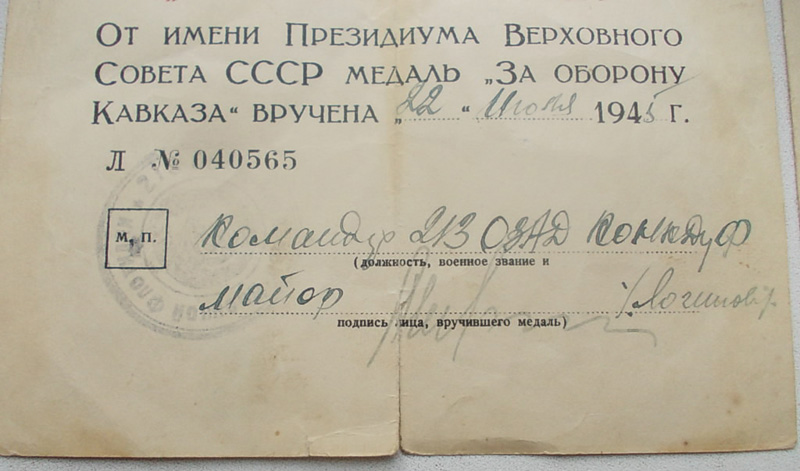 От имени Президиума Верховного
Совета СССР медаль „За оборону
Кавказа“ вручена „22“ Июля 1945 г.
Л № 040565
М. П.
Командир 213 ОЗАД КОНКДУФ
(должность, военное звание и
майор /Логинов/
подпись лица, вручившего медаль)